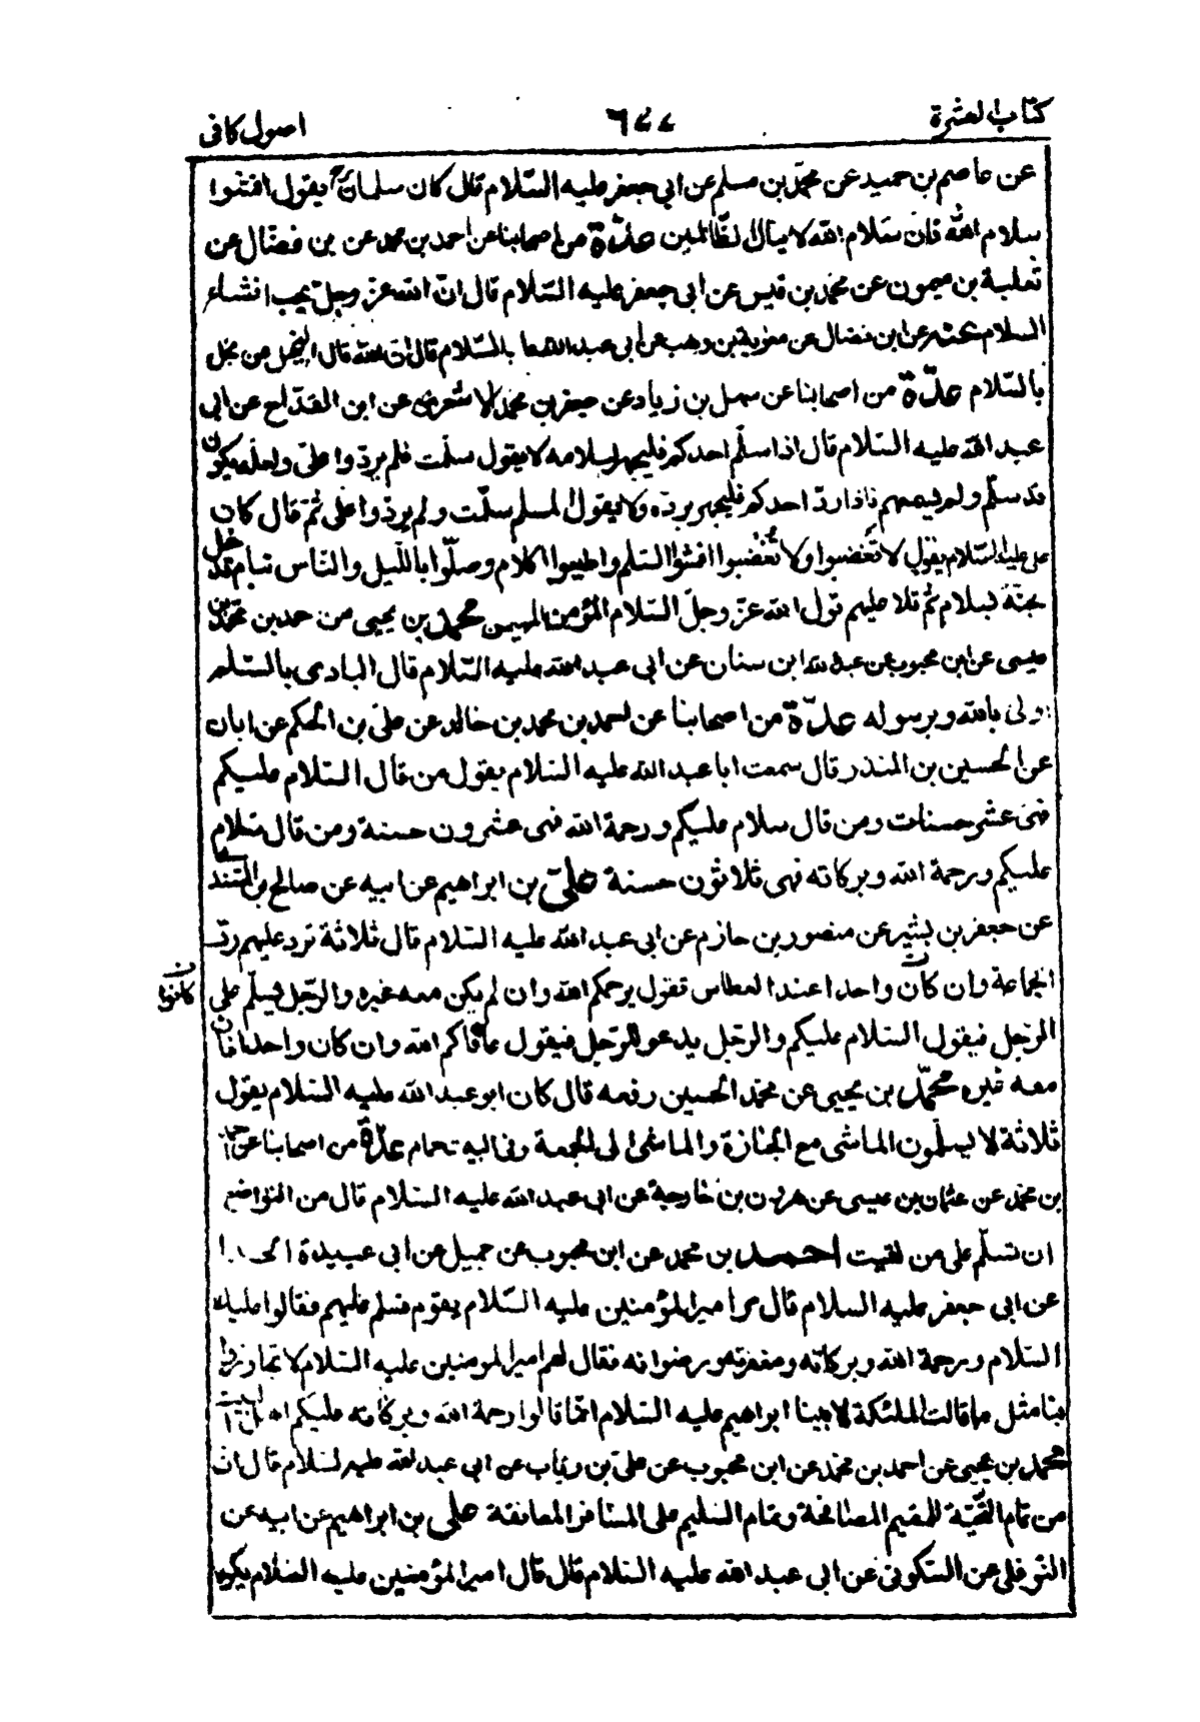 كتاب العشرة
٦٧٧
اصول كافى
عن عاصم بن حميد عن محمّد بن مسلم عن ابي جعفر عليه السّلام قال كان سلمان يقول افشوا
سلام الله فان سلام الله لا ينال الظّالمين عدّة من اصحابنا عن احمد بن محمد عن بن فضّال عن
ثعلبة بن ميمون عن محمد بن قيس عن ابى جعفر عليه السّلام قال انّ الله عزّ وجلّ يحب افشاء
السلام عنه عن ابن فضال عن معوية بن وهب عن ابى عبد الله عليه السّلام قال ان الله قال البخيل من بخل
بالسّلام عدّة من اصحابنا عن سهل بن زياد عن جعفر بن محمد الاشعرى عن ابن القدّاح عن ابى
عبد الله عليه السّلام قال اذا سلّم احدكم فليجهر بسلامه لا يقول سلّمت فلم يردّوا علىّ ولعله يكون
قد سلّم ولم يسمعهم فاذا ردّ احدكم فليجهر بردّه ولا يقول المسلم سلّمت ولم يردّوا علىّ ثمّ قال كان
على عليه السّلام يقول لا تَغضبوا ولا تُغضبوا افشوا السّلم واطيبوا الكلام وصلّوا بالليل والنّاس نيام تدخلوا
بجنّة بسلام ثم تلا عليهم قول الله عزّ وجلّ السّلام المؤمن المهيمن محمد بن يحيى عن احمد بن محمّد بن
عيسى عن ابن محبوب عن عبد الله ابن سنان عن ابى عبد الله عليه السّلام قال البادى بالسّلم
اولى بالله وبرسوله عدّة من اصحابنا عن احمد بن محمد بن خالد عن علىّ بن الحكم عن ابان
عن الحسين بن المنذر قال سمعت ابا عبد الله عليه السّلام يقول من قال السّلام عليكم
فهى عشر حسنات ومن قال سلام عليكم ورحمة الله فهى عشرون حسنة ومن قال سلام
عليكم ورحمة الله وبركاته فهى ثلاثون حسنة علىّ بن ابراهيم عن ابيه عن صالح بن السّندى
عن جعفر بن بشير عن منصور بن حازم عن ابى عبد الله عليه السّلام قال ثلاثة ترد عليهم ردّ
الجماعة وان كان واحدا عند العطاس تقول يرحمكم الله وان لم يكن معه غيره والرّجل يسلّم على
كانوا
الرّجل فيقول السّلام عليكم والرّجل يدعو للرّجل فيقول عافاكم الله وان كان واحدا فان
معه غيره محمّد بن يحيى عن محمّد الحسين رفعه قال كان ابو عبد الله عليه السّلام يقول
ثلاثة لا يسلّمون الماشى مع الجنازة والماشى الى الجمعة وفى بيت حمام عدّة من اصحابنا عن احمد
بن محمّد عن عثمان بن عيسى عن هرون بن خارجة عن ابى عبد الله عليه السّلام قال من التواضع
ان تسلّم على من لقيت احمد بن محمد عن ابن محبوب عن جميل عن ابى عبيدة الحذا
عن ابى جعفر عليه السلام قال مر امير المؤمنين عليه السّلام بقوم فسلم عليهم فقالوا عليك
السّلام ورحمة الله وبركاته ومغفرته ورضوانه فقال لهم امير المومنين عليه السّلام لا تجاوزوا
بنا مثل ما قالت الملئكة لابينا ابراهيم عليه السّلام انّما قالوا رحمة الله وبركاته عليكم اهل البيت
محمد بن يحيى عن احمد بن محمد عن ابن محبوب عن علىّ بن رياب عن ابى عبد الله عليه السّلام قال ان
من تمام التّحيّة للمقيم المصافحة وتمام التسليم على المسافر المعانقة على بن ابراهيم عن ابيه عن
النّوفلى عن السّكونى عن ابى عبد الله عليه السّلام قال قال امير المؤمنين عليه السّلام يكره